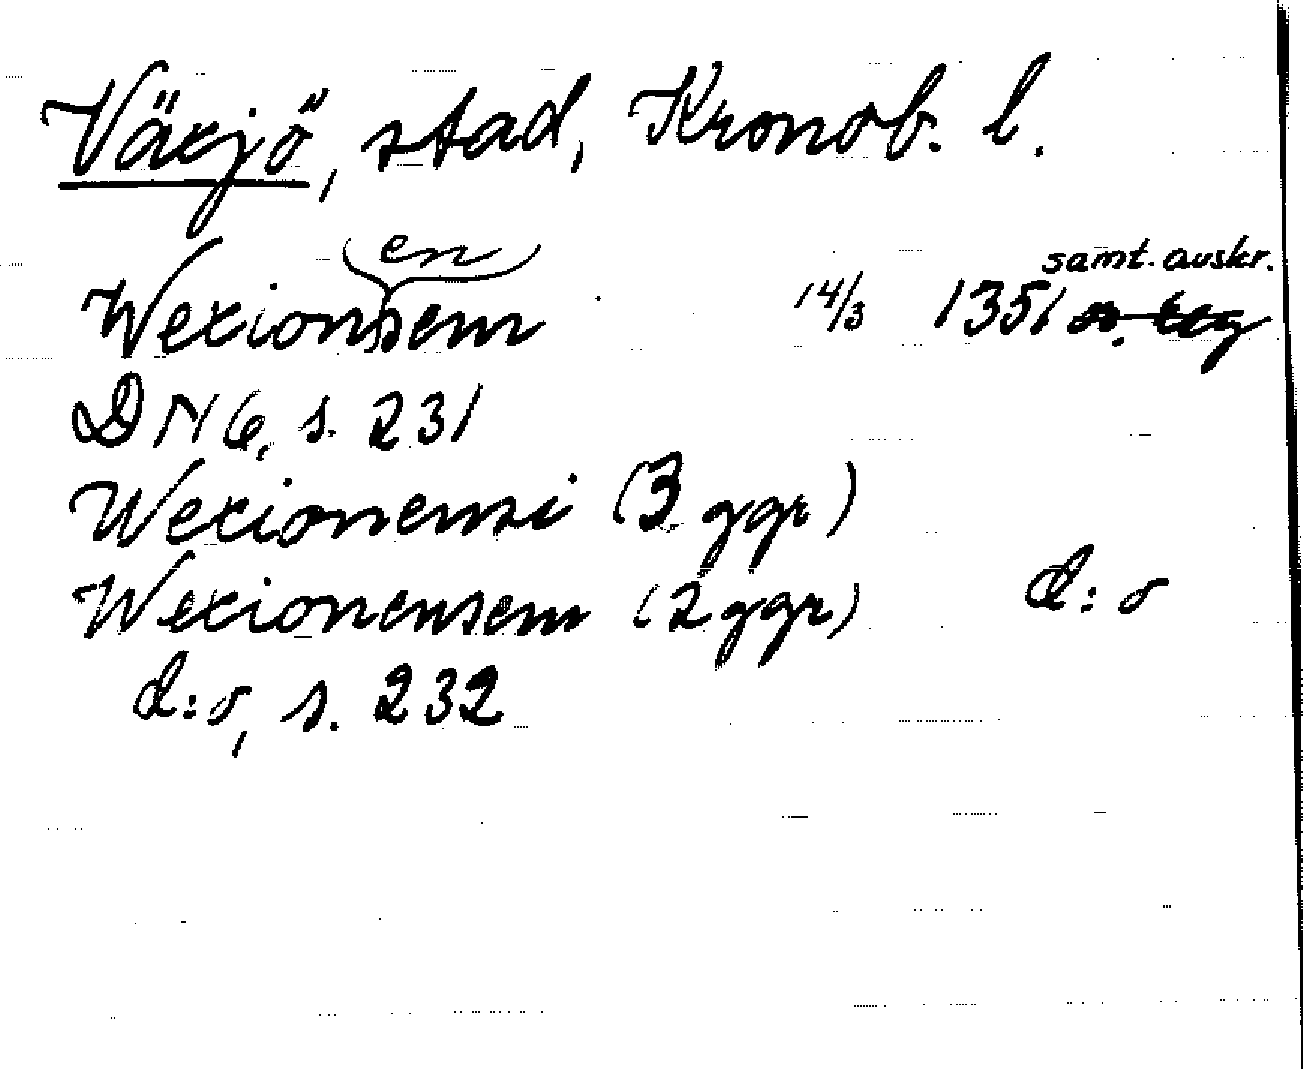 Växjö, stad, Kronob. l.
en
samt. avskr.
Wexionsem 14/3 1351
DN 6, s. 231
Wexionensi (3 ggr)
Wexionensem (2 ggr) d:o
d:o, s. 232